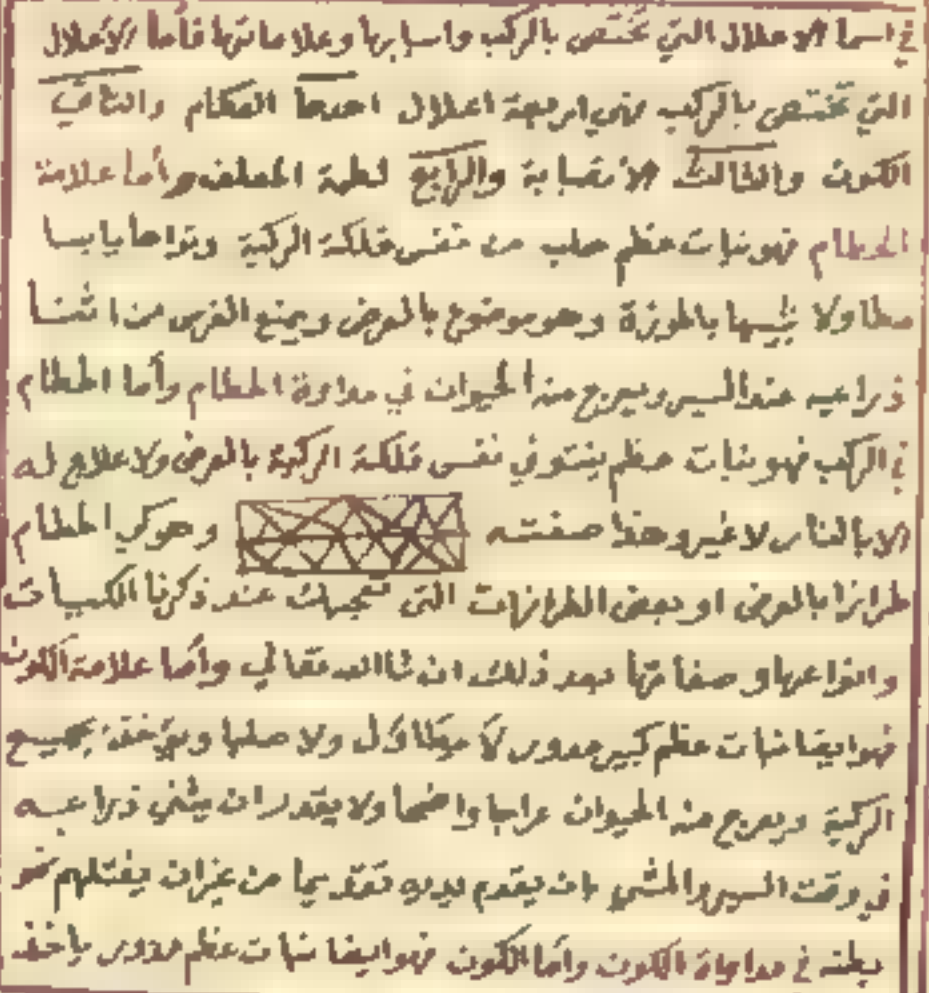 في اسما الاعلال التي تختص بالركب واسبابها وعلاماتها فأما الاعلال
التي تختص بالركب فهي اربعة اعلال احدها الحطام والثاني
الكون والثالث الانقسابة والرابع لطمة المعلف وأما علامة
الحطام فهو نبات عظم صلب من نفس فلكة الركبة وتراها يابسا
مطاولا بالموزة وهو موضوع بالعرض ويمنع الفرس من اثنا
ذراعيه عند السير ويعرج منه الحيوان في مداوة الحطام وأما الحطام
في الركب فهو نبات عظم ينتو في نفس فلكة الركبة بالعرض ولا علاج له
الا بالنار لا غير وهذا صفته وهو كي الحطام
طرازا بالعرض او بعض الطرازات التي عند ذكرنا الكييات
وانواعها وصفاتها بعد ذلك ان شاالله تعالي وأما علامة الكون
فهو ايضا نبات عظم كبير مدور لا مطاول ولا صلبا بجميع
الركبة ويعرج منه الحيوان عراجا واضحا ولا يقدر ان يثني ذراعيه
في وقت السير والمشي بان يقدم يديه تقديما من غيران نحو
بطنه في مداواة الكون وأما الكون فهو ايضا نبات عظم مدور ياخذ